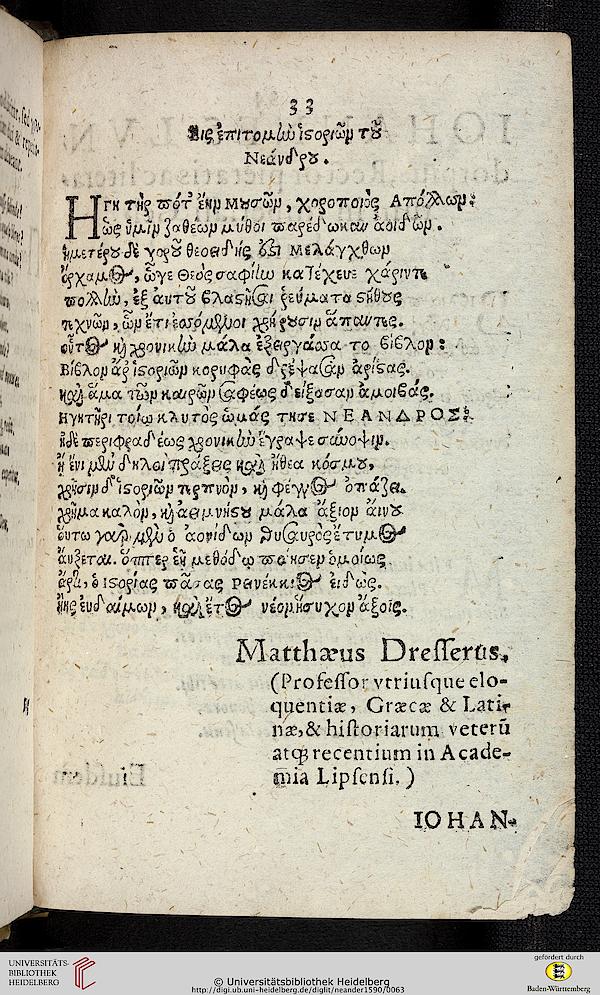 33
Εἰς ἐπιτομὴν ἱστοριῶν τοῦ
Νεάνδρου.
Ηγητὴρ ποτ' ἔην μουσῶν, χοροποιὸς Ἀπόλλων:
ὣς ὑμῖν ζαθέων μῦθοι παρέδωκαν ἀοιδῶν.
ἡμετέρου δὲ χοροῦ θεοειδής ἐστι Μελάγχθων
ἄρχαμος, ᾧγε Θεὸς σαφίην κατέχευε χάριν τε
πολλὴν, ἐξ αὐτοῦ βλαστῆσαι ῥεύματα στήθους
τεχνῶν, ὧν ἔτι ἑσσόμενοι χρήσουσιν ἅπαντες.
οὗτος καὶ χρονικὴν μάλα ἐξειργάσσα το βίβλον:
Βίβλον ἀφ' ἱστοριῶν κορυφὰς δρέψασαν ἀρίστας.
καὶ ἅμα τῶν καιρῶν σαφέως δείξασαν ἀμοιβάς.
Ηγητῆρι τοίῳ κλυτὸς ὡμάρτησε ΝΕΑΝΔΡΟΣ:
ἠδὲ περιφραδέως χρονικὴν ἔγραψε σύνοψιν.
ἣ ἐνὶ μὲν δηλοῖ πράξεις καὶ ἤθεα κόσμου,
χρῆσιν δ' ἱστοριῶν τερπνὸν, καὶ φέγγος ὀπάζει.
χρῆμα καλὸν, καὶ ἀειμνήστου μάλα ἄξιον αἴνου
οὕτω γὰρ μὲν ὁ ἀονίδων θησαυρὸς ἔτυμος
αὔξεται. ὅππερ ἑῇ μεθόδῳ ποίησεν ὁμοίως
ἱστορίας πάσας εἰδώς.
εὐδαίμων, καὶ ἔτος νέον ἥσυχον ἄξοις.
Matthæus Dresserus,
(Professor vtriusque elo-
quentiæ, Græcæ & Lati-
næ, & historiarum veterũ
atq; recentium in Acade-
mia Lipsensi.)
IOHAN-
UNIVERSITÄTS-
BIBLIOTHEK
HEIDELBERG
© Universitätsbibliothek Heidelberg
http://digi.ub.uni-heidelberg.de/diglit/neander1590/0063
gefördert durch
Baden-Württemberg